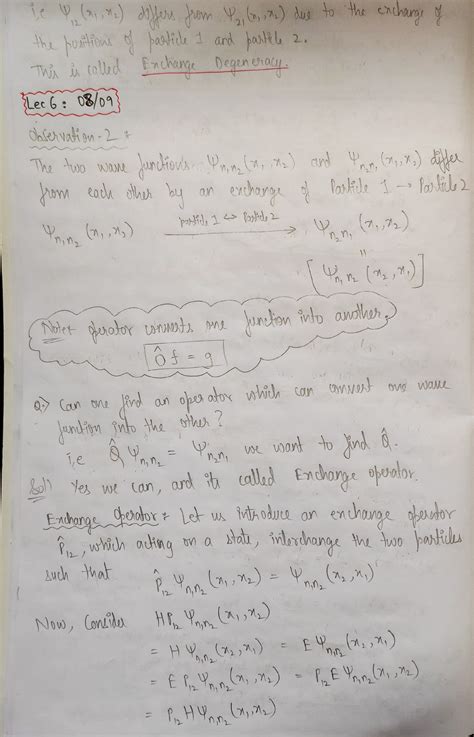 i,e Ψ₁₂(x₁,x₂) differs from Ψ₂₁(x₁,x₂) due to the exchange of
the positions of particle 1 and particle 2.
This is called Exchange Degeneracy.
Lec 6: 08/09
Observation-2 :
The two wave functions Ψn₁n₂(x₁,x₂) and Ψn₂n₁(x₁,x₂) differ
from each other by an exchange of Particle 1 → Particle 2
Ψn₁n₂(x₁,x₂) particle 1 ↔ Particle 2 → Ψn₂n₁(x₁,x₂)
॥
[Ψn₁n₂(x₂,x₁)]
Note: Operator converts one function into another.
Ô f = g
Q.) Can one find an operator which can convert one wave
function into the other?
i,e Q̂ Ψn₁n₂ = Ψn₂n₁ we want to find Q̂.
Sol) Yes we can, and its called Exchange operator.
Exchange Operator: Let us introduce an exchange operator
P̂₁₂, which acting on a state, interchange the two particles
such that P̂₁₂ Ψn₁n₂(x₁,x₂) = Ψn₁n₂(x₂,x₁)
Now, Consider HP₁₂ Ψn₁n₂(x₁,x₂)
= HΨn₁n₂(x₂,x₁) = EΨn₁n₂(x₂,x₁)
= EP₁₂Ψn₁n₂(x₁,x₂) = P₁₂EΨn₁n₂(x₁,x₂)
= P₁₂HΨn₁n₂(x₁,x₂)